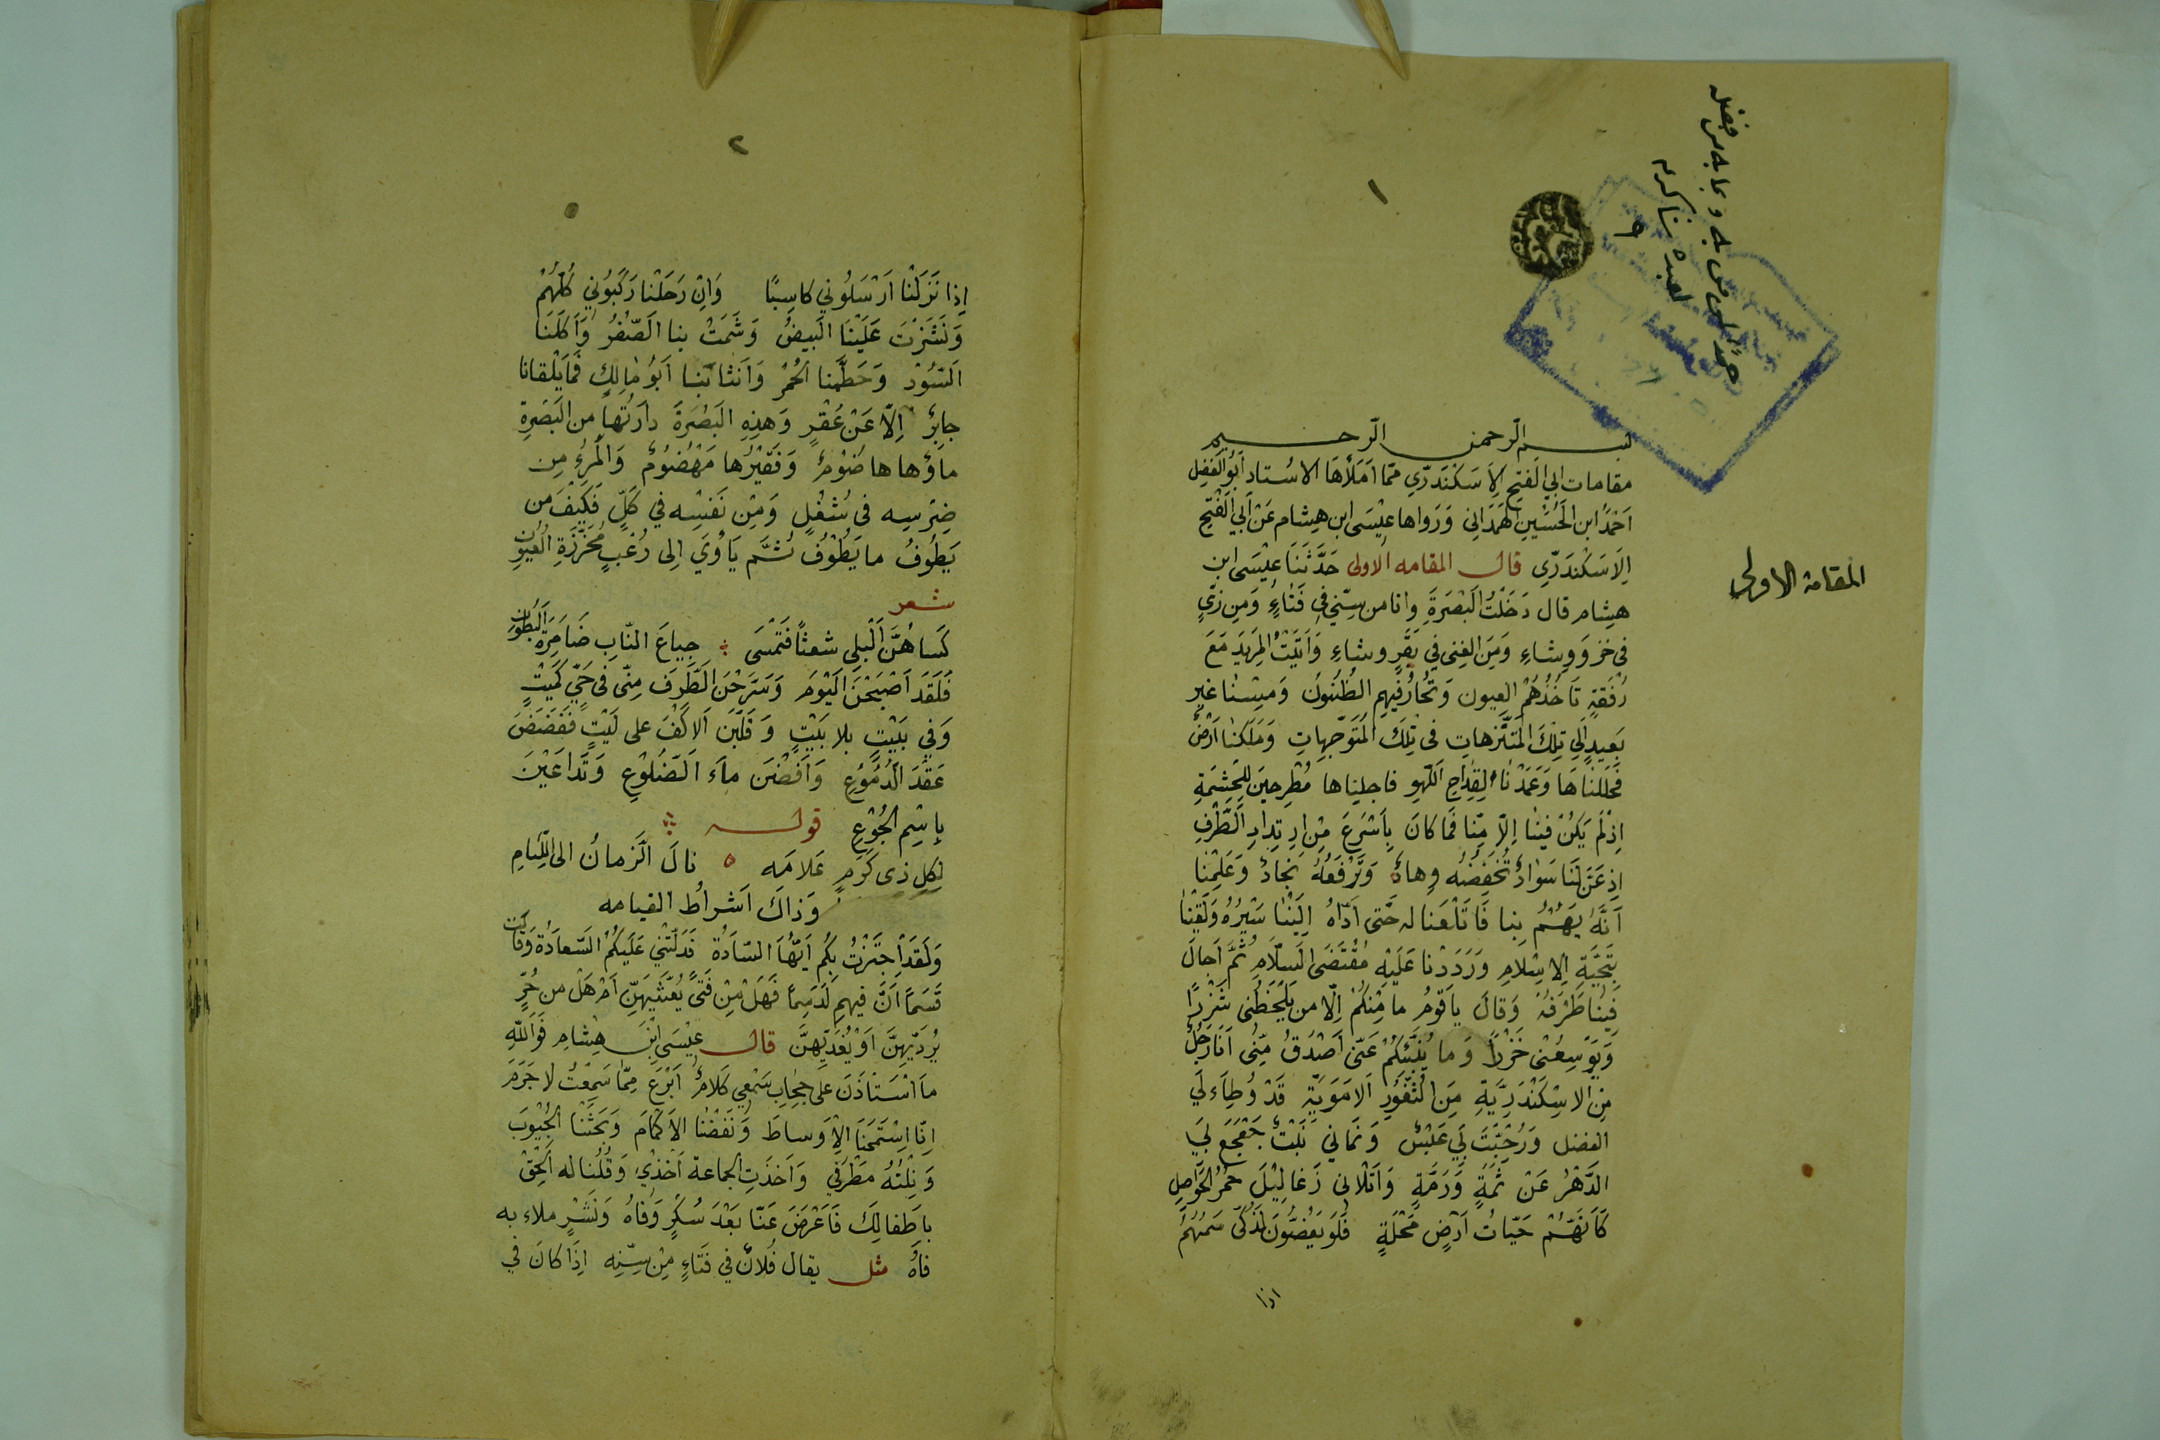 ١
المقامة الاولى
بسم الرحمن الرحيم
مقامات ابي الفتح الاسكندري ممّا املأها الاستاد ابو الفضل
احمد ابن الحسين الهمداني ورواها عيسى ابن هشام عن ابي الفتح
الاسكندري قال المقامه الاولى حدثنا عيسى ابن
هشام قال دخلت البصرة وانا من سنّي في فتاء ومن زيّ
في خز ووشاء ومن الغنى في بقر وشاء واتيت المربد مع
رفقة تاخذهم العيون وتحار فيهم الظنون ومشنا غير
بعيد الى تلك المتنزهات في تلك المتوجهات وملكنا ارض
فحللناها وعمدنا لقداح اللهو فاجلناها مطرحين للحشمة
اذ لم يكن فينا الّا منّا فما كان باسرع من ارتداد الطرف
اذ عنّ لنا سواد تخفضه وهاد وترفعه نجاد وعلمنا
انه يهمّ بنا فاتلعنا له حتى ادّاه الينا سيره ولقينا
بتحية الاسلام ورددنا عليه مقتضى السلام ثم اجال
فينا طرفه وقال ياقوم ما منكم الّا من يلحظني شزرا
ويوسعني خزرا وما ينبّئكم عنّى اصدق منّى انا رجل
من الاسكندرية من الثغور الاموية قد وطاء لي
الفضل ورحّبت بي عبس ونماني بيت جعجع بي
الدهر عن ثمة ورمة واتلانى زغاليل حمر الحواصل
كانهم حيات ارض محلة فلو يعضون لذكى سمهم
اذا
٢
اذا نزلنا ارسلوني كاسبا وان رحلنا ركبوني كلهم
ونشزت علينا البيض وشمت بنا الصفر واكلنا
السود وحطمنا الحمر وانثابنا ابو مالك فما يلقانا
جابر الّا عن عقر وهذه البصرة دارتها من البصرة
ماؤها هاضوم وفقيرها مهضوم والمرء من
ضرسه في شغل ومن نفسه في كلّ فكيف من
يطوف ما يطوف ثم ياوي الى زغب محززة العيون
شعر
كساهن البلى شعثا فتمسى جياع الناب ضامرة البطون
فلقد اصبحن اليوم وسرحن الطرف منّى في حيّ كميت
وفي بيت بلا بيت وقلبن الاكف على ليت ففضض
عقد الدموع وافضن ماء الضلوع وتداعين
باسم الجوع قوله
لكل ذى كرم علامه نال الزمان الى اللئام
وذاك اشراط القيامه
ولقد اجتزت بكم ايها السّادة فدلّتني عليكم السعادة وقلت
قسما انّ فيهم لدسما فهل من فتى يعشّيهنّ ام هل من حرّ
يردّيهنّ او يغديهنّ قال عيسى ابن هشام فوالله
ما استاذن على حجاب سمعي كلام ابرع ممّا سمعت لا جرم
انّا استمحنا الاوساط ونفضنا الاكمام وبحثنا الجيوب
ونلته مطرفي واخذت الجماعة اخذي وقلنا له الحق
باطفالك فاعرض عنّا بعد شكر وفاه ونشر ملاء به
فاه مثل يقال فلان في فتاء من سنه اذا كان في